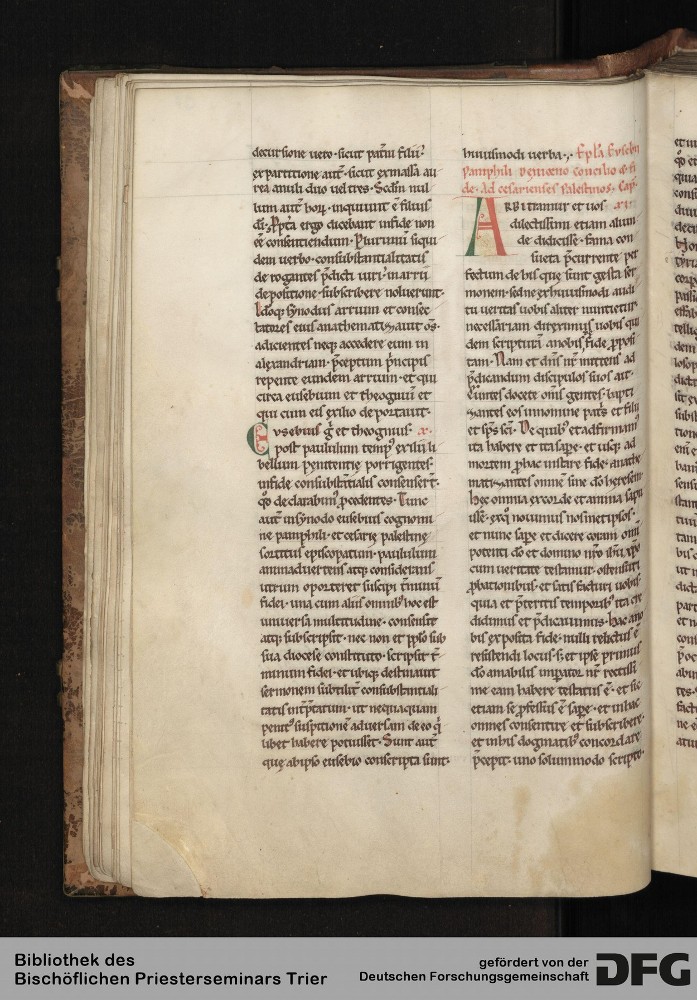 decursione uero · sicut patrū filii ·
ex partitione aut̄ · sicut ex massa au
rea anuli duo uel tres · Scd̄m nul
lum aut̄ hoꝝ · inquiunt ē filius
di · Ꝓpt̄a ergo dicebant in fide non
ēē consentiendum · Plurimū siqui
dem uerbo · consubstantialitatis
derogantes p̄dicti uiri · in arrii
depositione · subscribere noluerunt ·
Idoq; synodus arrium et consec
tatores eius anathematizauit om̄s ·
adicientes neq; accedere eum in
alexandriam · p̄ceptum p̄ncipis
repente eundem arrium · et qui
circa eusebium et theogniū et
qui cum eis exilio deportauit ·
Eusebius g̊ et theognius · x ·
post paululum temp᷒ exilii li
bellum penitentie porrigentes ·
in fide consubstn̄tialis consenser̄t ·
qd̊ declarabim᷒ p̱cedentes · Tunc
aut̄ in synodo eusebius cognomi
ne pamphili · et cesarie palestine
sortitus episcopatum · paululum
animaduertens atq; considerans
utrum oporteret suscipi t̄minū
fidei · una cum aliis omnib᷒ hoc est
uniuersa multitudine · consensit
atq; subscripsit · nec non et ppl̄o sub
sua diocese constituto · scripsit t̄
minum fidei · et ubiq; destinauit
sermonem subtilit̄ consubstantiali
tatis int̄p̄tatum · ut nequaquam
penit᷒ suspitionē aduersam de eo q̄
libet habere potuisset · Sunt aut̄
que ab ipso eusebio conscripta sunt ·
huiusmodi uerba · Ep̄la Eusebii
Pamphili de niceno concilio & fi
de · Ad cesarienses palestinos · Cap̄ ·
ARBitramur et uos · xi ·
dilectissimi etiam aliun
de didicisse · fama con
sueta p̄currente per
fectum de his que sunt gesta ser
monem · sed ne ex huiusmodi audi
tu ueritas uobis aliter nuntietur
necessariam direximus uobis qui
dem scripturā a nobis fide p̱posi
tam · Nam et dn̄s nr̄ mittens ad
p̄dicandum discipulos suos ait ·
Euntes docete om̄s gentes · bapti
zantes eos in nomine patris et filii
et sp̄s sc̄i · De quib᷒ et adfirmam᷒
ita habere et ita sapere · et usq; ad
mortem p̱ hac instare fide · anathe
matizantes omnē sine dō heresem
hec omnia ex corde et anima sapu
isse · ex q̊ nouimus nosmet ipsos ·
et nunc sapere et dicere coram om̄i
potenti dō et domino nr̄o ih̄u xp̄o
cum ueritate testamur · ostensuri
p̱bationibus · et satis facturi uobis ·
quia et p̄teritis temporib᷒ ita cre
didimus et p̄dicauimus · hac a no
bis exposita fide · nulli relictus ē
resistendi locus · s; et ipse primus
dō amabilis imp̱ator nr̄ rectissi
me eam habere testatus ē · et sic
etiam se p̱fessus ē sapere · et in hac
omnes consentire et subscribere
et in his dogmatib᷒ concordare
p̄cepit · uno solummodo scripto ·
Bibliothek des
Bischöflichen Priesterseminars Trier
gefördert von der
Deutschen Forschungsgemeinschaft
DFG